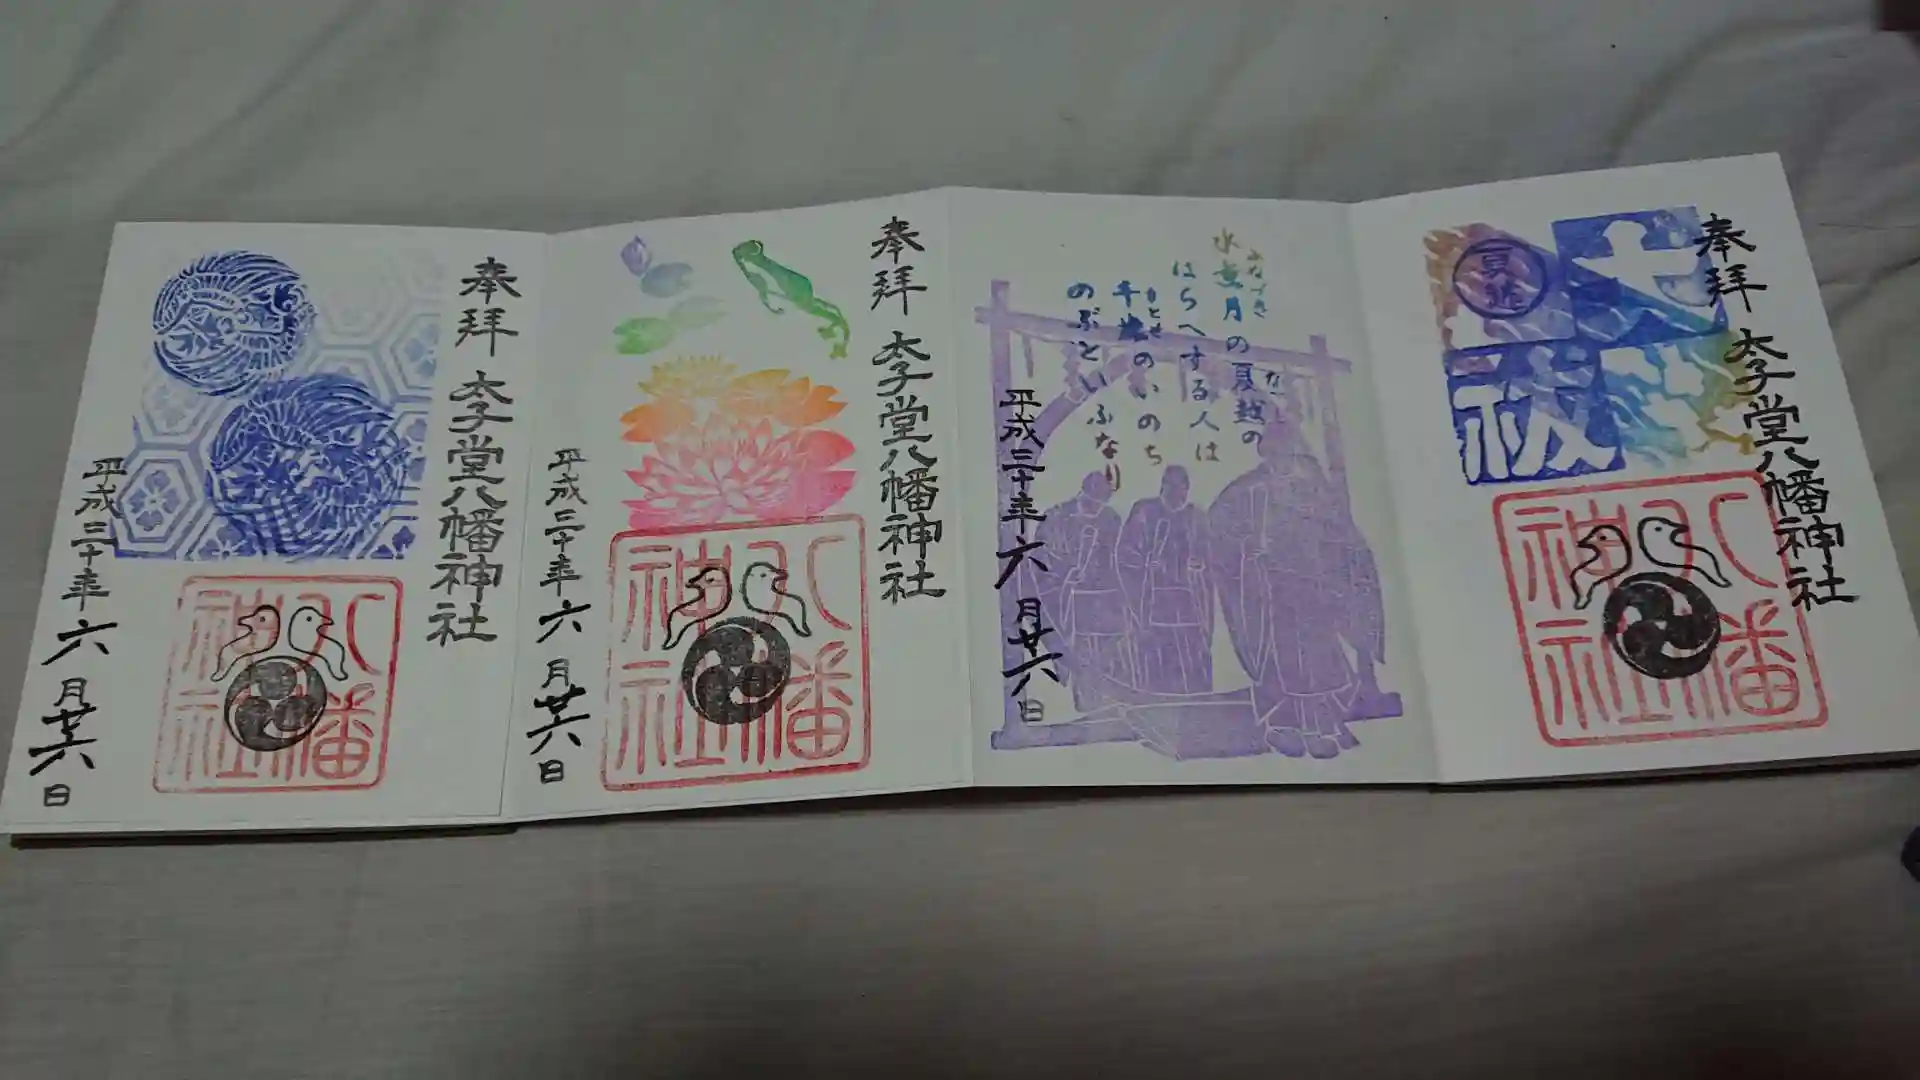 奉拝
太子堂八幡神社
八幡神社
平成三十年六月廿六日
奉拝
太子堂八幡神社
八幡神社
平成三十年六月廿六日
みなづき
なごし
水無月の夏越の
はらへする人は
ちとせ
千歳のいのち
のぶといふなり
平成三十年六月廿六日
奉拝
太子堂八幡神社
夏越
大
祓
八幡神社